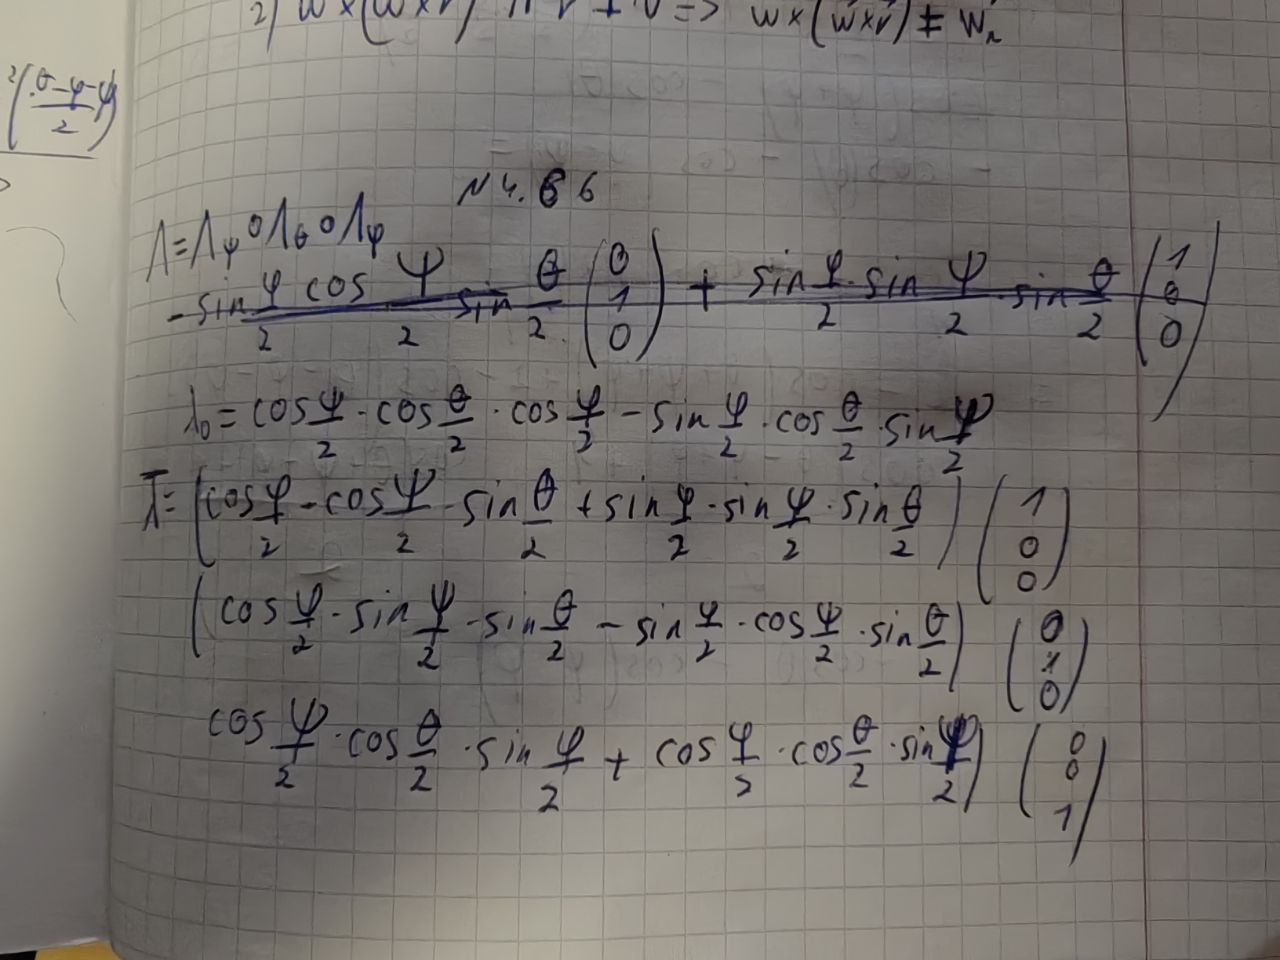 2) w×(w×r) ⇒ w×(w×r) ≠ Wn
(θ-φ-ψ)/2
N 4. 6 6
Λ = Λψ ∘ Λθ ∘ Λφ
- sin φ/2 cos ψ/2 sin θ/2 (0 1 0) + sin φ/2 · sin ψ/2 · sin θ/2 (1 0 0)
λ₀ = cos ψ/2 · cos θ/2 · cos φ/2 - sin φ/2 · cos θ/2 · sin ψ/2
λ̄ = (cos φ/2 - cos ψ/2 - sin θ/2 + sin φ/2 · sin ψ/2 · sin θ/2) (1 0 0)
(cos φ/2 · sin ψ/2 · sin θ/2 - sin φ/2 · cos ψ/2 · sin θ/2) (0 1 0)
cos ψ/2 · cos θ/2 · sin φ/2 + cos φ/2 · cos θ/2 · sin ψ/2) (0 0 1)